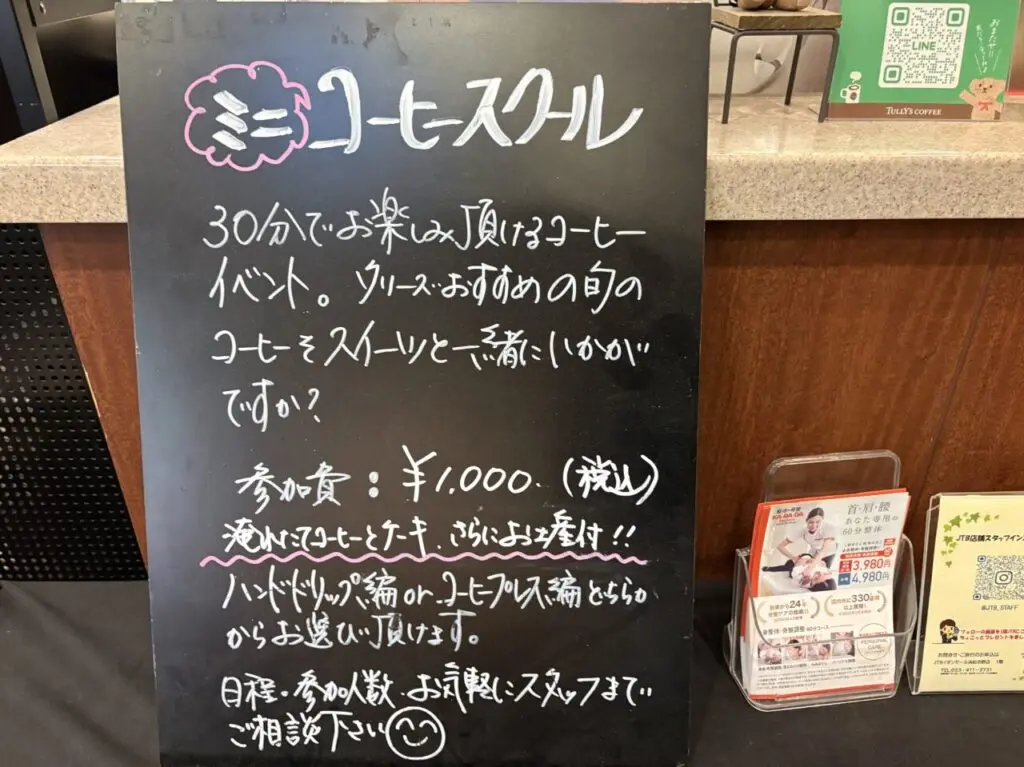 ミニ コーヒースクール
30分でお楽しみ頂けるコーヒー
イベント。タリーズおすすめの旬の
コーヒーをスイーツと一緒にいかがで
ですか?
参加費:¥1.000.(税込)
淹れたてコーヒーとケーキ、さらにお土産付!!
ハンドドリップ編 or コーヒープレス編どちら
からお選び頂けます。
日程・参加人数、お気軽にスタッフまで
ご相談下さい
LINE
TULLY'S COFFEE
KA・RA・DA
首・肩・腰
あなた専用の
60分整体
3,980円
4,980円
24年
330店舗
JTB店舗スタッフイン
@JTB_STAFF